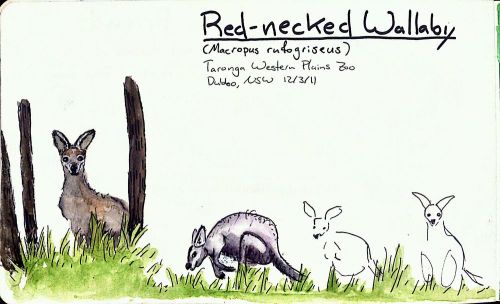 Red-necked Wallaby
(Macropus rufogriseus)
Taronga Western Plains Zoo
Dubbo, NSW 12/3/11